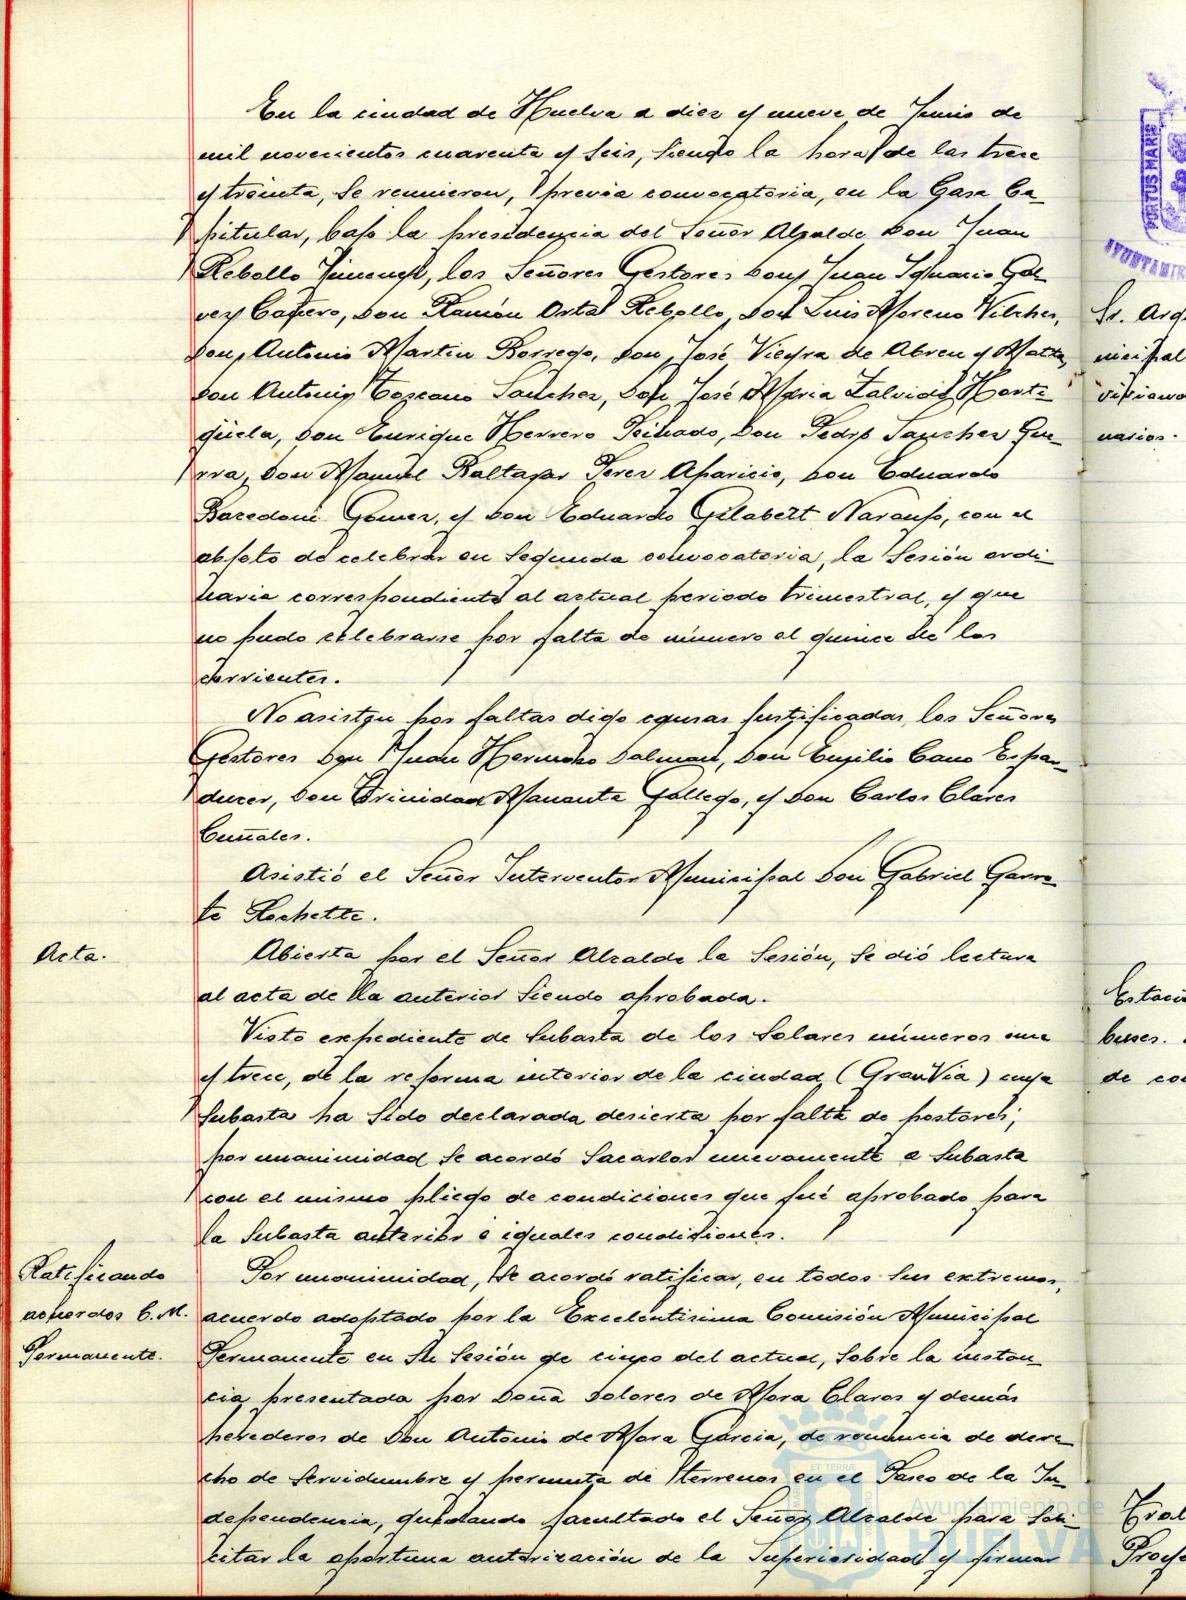 En la ciudad de Huelva a diez y nueve de Junio de
mil novecientos cuarenta y seis, siendo la hora de las trece
y treinta, se reunieron, previa convocatoria, en la Casa Ca-
pitular, bajo la presidencia del Señor Alcalde Don Juan
Rebollo Jimenez, los Señores Gestores Don Juan Ignacio Gal-
vez Cañero, Don Ramón Ortal Rebollo, Don Luis Moreno Vilches,
Don Antonio Martin Borrego, Don José Vieyra de Abreu y Matta,
Don Antonio Toscano Sanchez, Don José Maria Zalvide Horti-
güela, Don Enrique Herrero Peinado, Don Pedro Sanchez Gue-
rra, Don Manuel Baltasar Perez Aparicio, Don Eduardo
Gomez, y Don Eduardo Gilabert Naranjo, con el
objeto de celebrar en segunda convocatoria, la Sesión ordi-
naria correspondiente al actual periodo trimestral, y que
no pudo celebrarse por falta de número el quince de los
corrientes.
No asisten por faltas digo causas justificadas, los Señores
Gestores Don Juan Hermoso Dalman, Don Emilio Cano Espan-
ducer, Don Trinidad Gallego, y Don Carlos Clares
Asistió el Señor Interventor Municipal Don Gabriel Garra-
te Rochette.
Acta.
Abierta por el Señor Alcalde la Sesión, se dió lectura
al acta de la anterior siendo aprobada.
Visto expediente de subasta de los solares números once
y trece, de la reforma interior de la ciudad (Gran Via) cuya
subasta ha sido declarada desierta por falta de postores;
por unanimidad se acordó sacarlos nuevamente a subasta
con el mismo pliego de condiciones que fué aprobado para
la subasta anterior e iguales condiciones.
Ratificando
acuerdos C. M.
Permanente.
Por unanimidad, se acordó ratificar, en todos sus extremos,
acuerdo adoptado por la Excelentisima Comisión Municipal
Permanente en su sesión de cinco del actual, sobre la instan-
cia presentada por Doña Dolores de Mora Claros y demás
herederos de Don Antonio de Mora Garcia, de renuncia de dere-
cho de servidumbre y permuta de terrenos en el Paseo de la In-
dependencia, quedando facultado el Señor Alcalde para soli-
citar la oportuna autorización de la Superioridad y firmar
PORTUS MARIS
Sr. Arq
nicipal
narios.
Estaci
buses.
de co
Ayuntamiento de
HUELVA